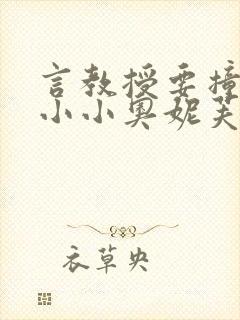 言教授要撞
小小奥妮芙
衣草央